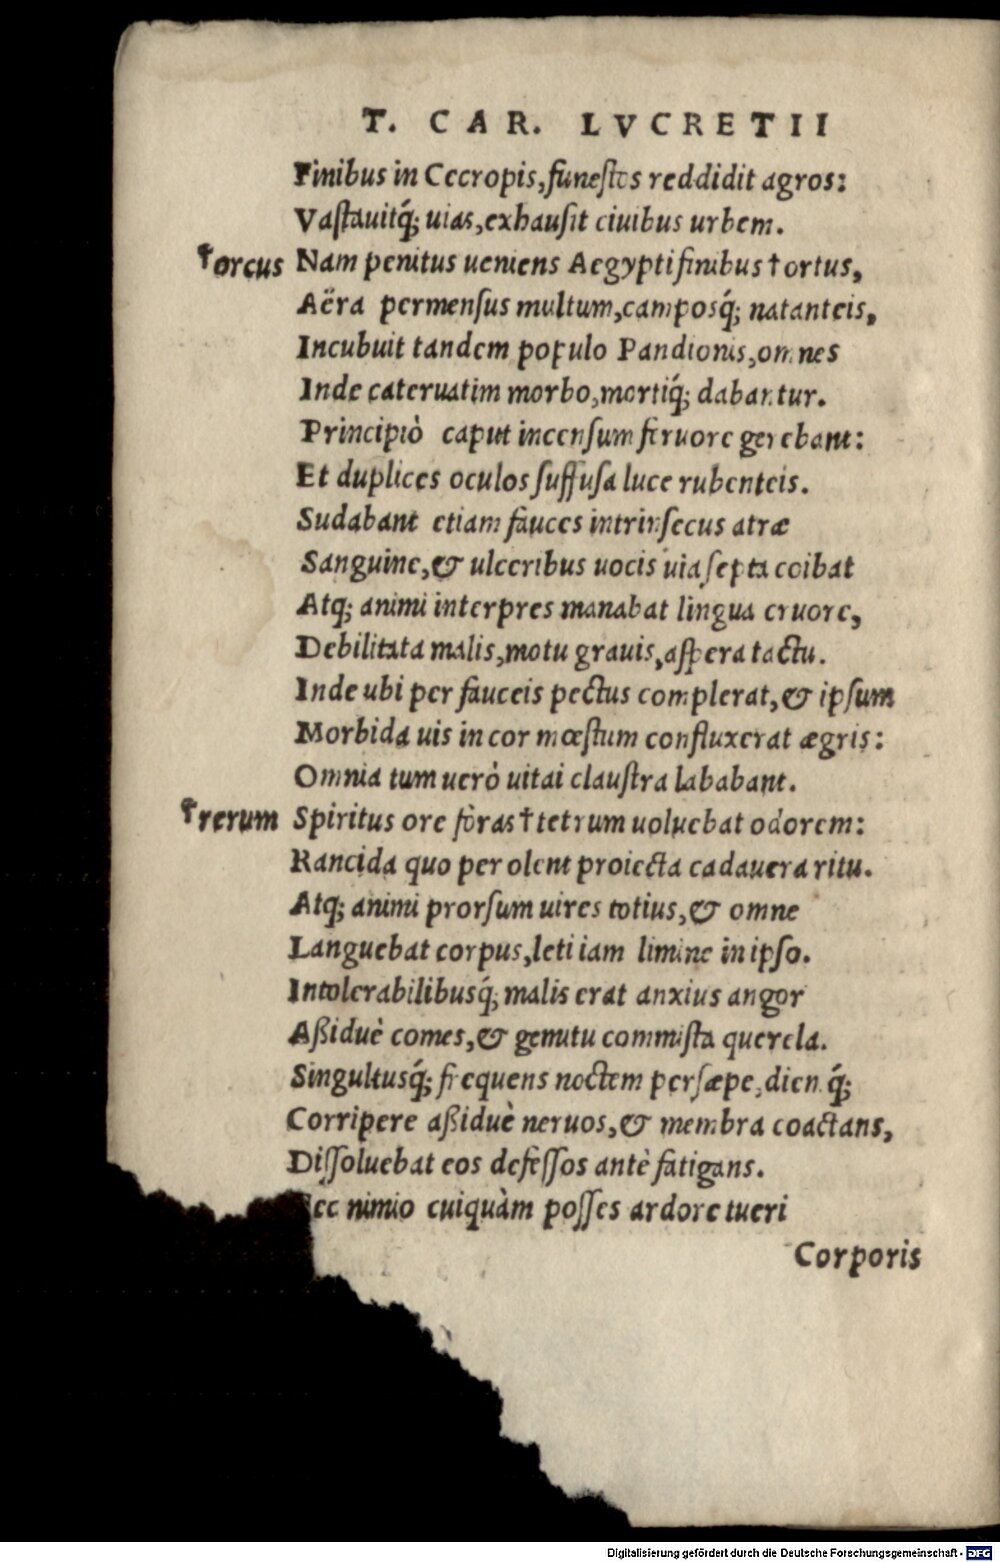 T. CAR. LVCRETII
Finibus in Cecropis, funeſtos reddidit agros:
Vaſtauitq́; uias, exhauſit ciuibus urbem.
†orcus Nam penitus ueniens Aegypti finibus † ortus,
Aëra permenſus multum, camposq́; natanteis,
Incubuit tandem populo Pandionis, omnes
Inde cateruatim morbo, mortiq́; dabantur.
Principiò caput incenſum feruore gerebant:
Et duplices oculos ſuffuſa luce rubenteis.
Sudabant etiam fauces intrinſecus atræ
Sanguine, & ulceribus uocis uia ſepta coibat
Atq; animi interpres manabat lingua cruore,
Debilitata malis, motu grauis, aſpera tactu.
Inde ubi per fauceis pectus complerat, & ipſum
Morbida uis in cor mœſtum confluxerat ægris:
Omnia tum uerò uitai clauſtra lababant.
†rerum Spiritus ore fòras † tetrum uoluebat odorem:
Rancida quo per olent proiecta cadauera ritu.
Atq; animi prorſum uires totius, & omne
Languebat corpus, leti iam limine in ipſo.
Intolerabilibusq́; malis erat anxius angor
Aßiduè comes, & gemitu commiſta querela.
Singultusq́; frequens noctem perſæpe, diemq́;
Corripere aßiduè neruos, & membra coactans,
Diſſoluebat eos defeſſos antè fatigans.
Nec nimio cuiquàm poſſes ardore tueri
Corporis
Digitalisierung gefördert durch die Deutsche Forschungsgemeinschaft - DFG